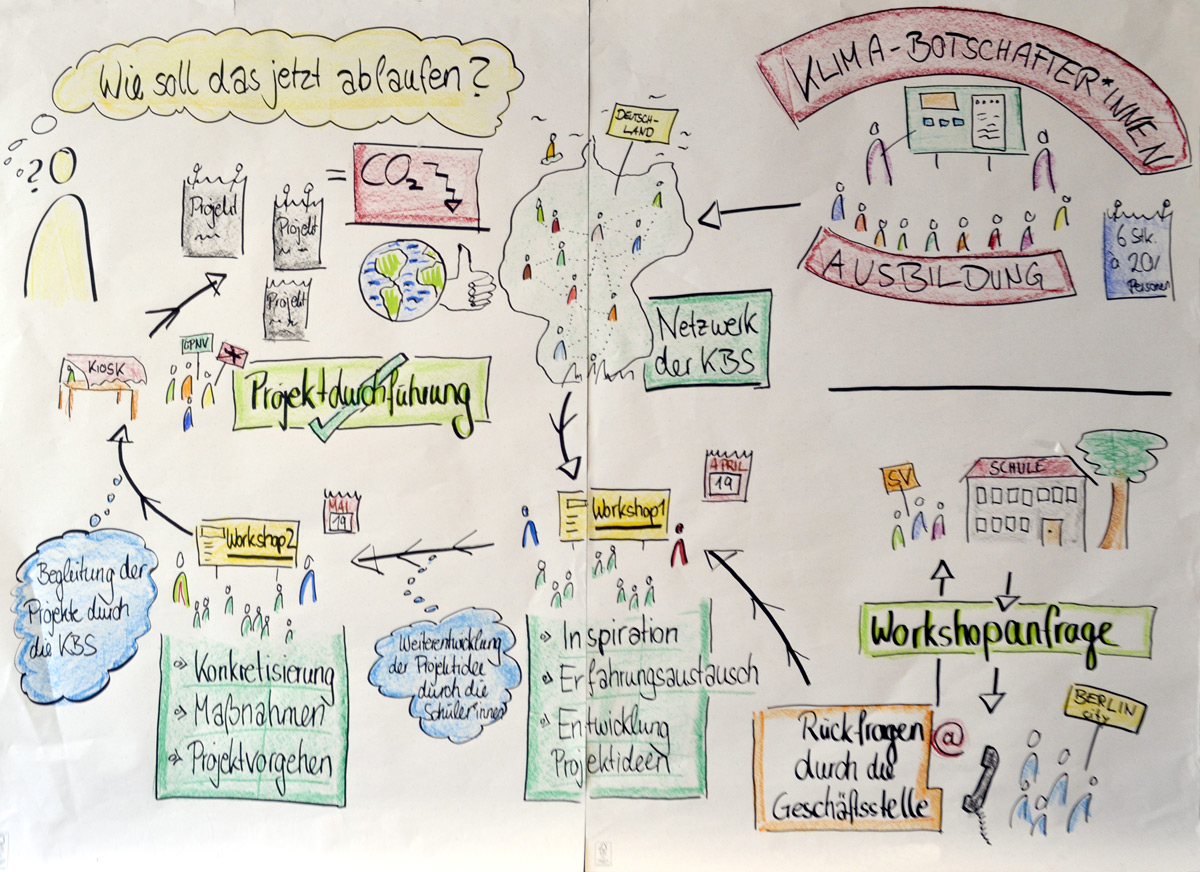 Wie soll das jetzt ablaufen?
?
Projekt
Projekt
Projekt
=
CO₂
DEUTSCH-
LAND
KLIMA-BOTSCHAFTER*INNEN
AUSBILDUNG
6 Stk.
a 20/
Personen
Netzwerk
der KBS
KIOSK
ÖPNV
*
Projektdurchführung
APRIL
19
Workshop1
⇒ Inspiration
⇒ Erfahrungsaustausch
⇒ Entwicklung
Projektideen
MAI
19
Workshop2
⇒ Konkretisierung
⇒ Maßnahmen
⇒ Projektvorgehen
Begleitung der
Projekte durch
die KBS
Weiterentwicklung
der Projektidee
durch die
Schüler*innen
SV
SCHULE
Workshopanfrage
Rückfragen
durch die
Geschäftsstelle
@
BERLIN
city